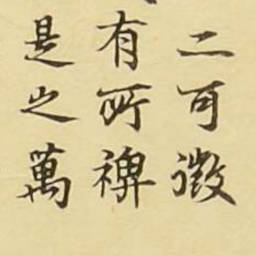 二可徵
有所裨
是之萬